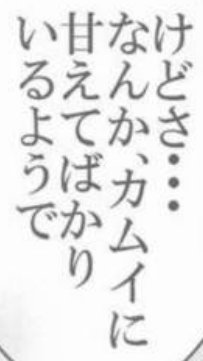 けどさ・・・
なんか、カムイに
甘えてばかり
いるようで